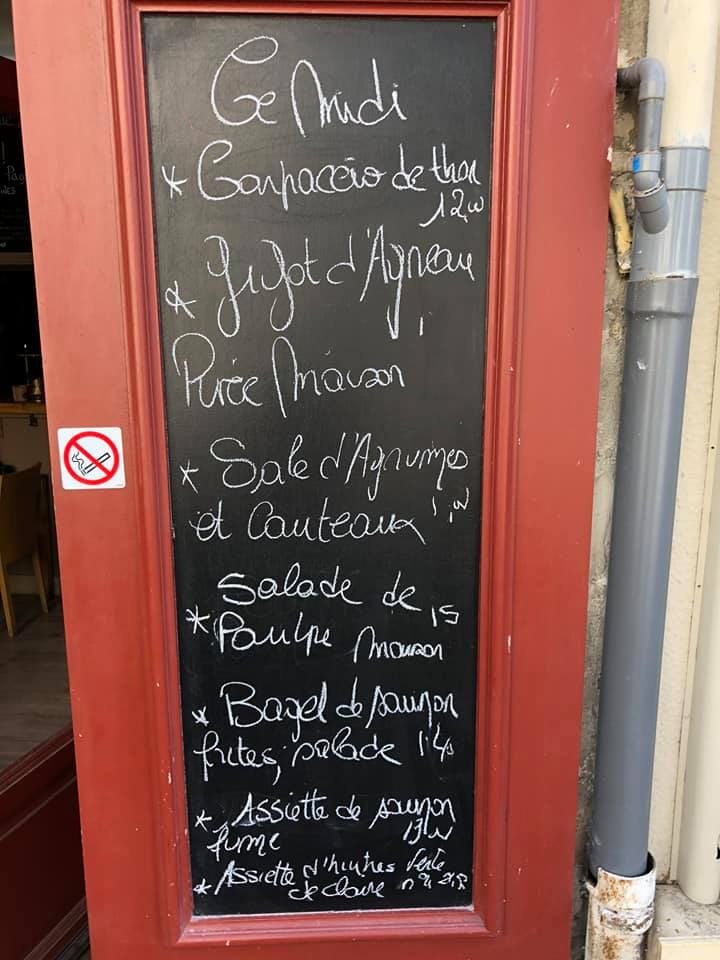 Ce Midi
* Carpaccio de thon
12
* Gigot d'Agneau
Purée Maison
* Sole d'Agrumes
et Couteaux
Salade de
* Poulpe Maison 15
* Bagel de saumon
frites, salade 14
* Assiette de saumon
fumé 13
* Assiette d'huitres Verte
de claire n°4